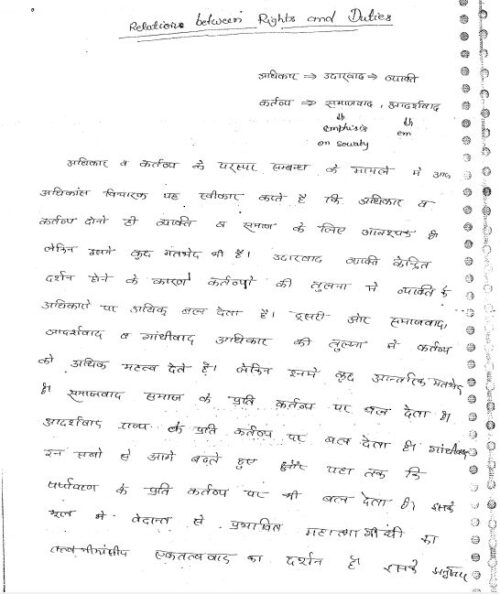 Relations between Rights and Duties
अधिकार ⇒ उदारवाद → व्यक्ति
कर्तव्य ⇒ समाजवाद, आदर्शवाद
emphisis em
on society
अधिकार व कर्तव्य के परस्पर सम्बन्ध के मामले में
अधिकांश विचारक यह स्वीकार करते हैं कि अधिकार व
कर्तव्य दोनों ही व्यक्ति व समाज के लिए आवश्यक है
लेकिन इनमें कुछ मतभेद भी है। उदारवाद व्यक्ति केन्द्रित
दर्शन होने के कारण कर्तव्यों की तुलना में व्यक्ति के
अधिकारों पर अधिक बल देता है। दूसरी ओर समाजवाद,
आदर्शवाद व गांधीवाद अधिकार की तुलना में कर्तव्य
को अधिक महत्व देते है। लेकिन इनमें कुछ आन्तरिक मतभेद
है। समाजवाद समाज के प्रति कर्तव्य पर बल देता है।
आदर्शवाद राज्य के प्रति कर्तव्य पर बल देता है। गांधीवाद
इन सबों से आगे बढ़ते हुए और यहा तक कि
पर्यावरण के प्रति कर्तव्य पर भी बल देता है। इसके
मूल में वेदान्त से प्रभावित महात्मा गाँधी का
तत्वमीमांसीय एकतत्ववाद का दर्शन है। इसके अनुसार